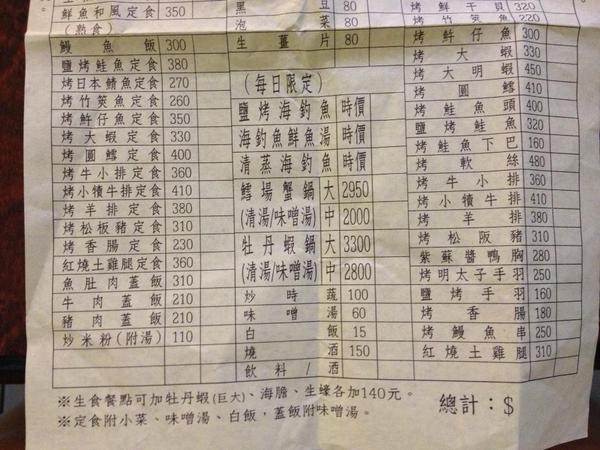 鮮魚和風定食 350
(熟食)
鰻魚飯 300
鹽烤鮭魚定食 380
烤日本鯖魚定食 270
烤竹筴魚定食 260
烤魽仔魚定食 350
烤大蝦定食 330
烤圓鱈定食 400
烤牛小排定食 360
烤小犢牛排定食 410
烤羊排定食 380
烤松板豬定食 310
烤香腸定食 230
紅燒土雞腿定食 360
魚肚肉蓋飯 310
牛肉蓋飯 210
豬肉蓋飯 210
炒米粉(附湯) 110
黑豆 80
泡菜 80
生薑片 80
(每日限定)
鹽烤海釣魚 時價
海釣魚鮮魚湯 時價
清蒸海釣魚 時價
鱈場蟹鍋 大 2950
(清湯/味噌湯) 中 2000
牡丹蝦鍋 大 3300
(清湯/味噌湯) 中 2800
炒時蔬 100
味噌湯 60
白飯 15
燒酒 150
飲料/酒
烤鮮干貝 320
烤竹筴魚 220
烤魽仔魚 300
烤大蝦 330
烤大明蝦 450
烤圓鱈 410
烤鮭魚頭 400
鹽烤鮭魚 320
烤鮭魚下巴 160
烤軟絲 480
烤牛小排 360
烤小犢牛排 410
烤羊排 380
烤松阪豬 310
紫蘇醬鴨胸 280
烤明太子手羽 250
鹽烤手羽 160
烤香腸 180
烤鰻魚串 250
紅燒土雞腿 310
※生食餐點可加牡丹蝦(巨大)、海膽、生蠔各加140元。
※定食附小菜、味噌湯、白飯,蓋飯附味噌湯。
總計:$